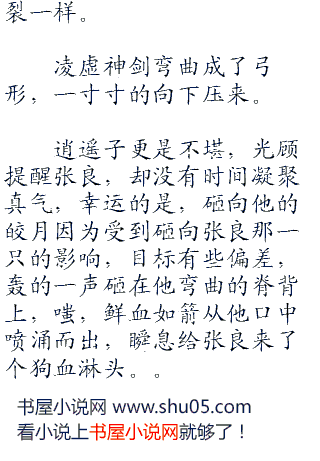 裂一样。
凌虚神剑弯曲成了弓
形，一寸寸的向下压来。
逍遥子更是不堪，光顾
提醒张良，却没有时间凝聚
真气，幸运的是，砸向他的
皎月因为受到砸向张良那一
只的影响，目标有些偏差，
轰的一声砸在他弯曲的脊背
上，嗤，鲜血如箭从他口中
喷涌而出，瞬息给张良来了
个狗血淋头。。
书屋小说网 www.shu05.com
看小说上书屋小说网就够了！